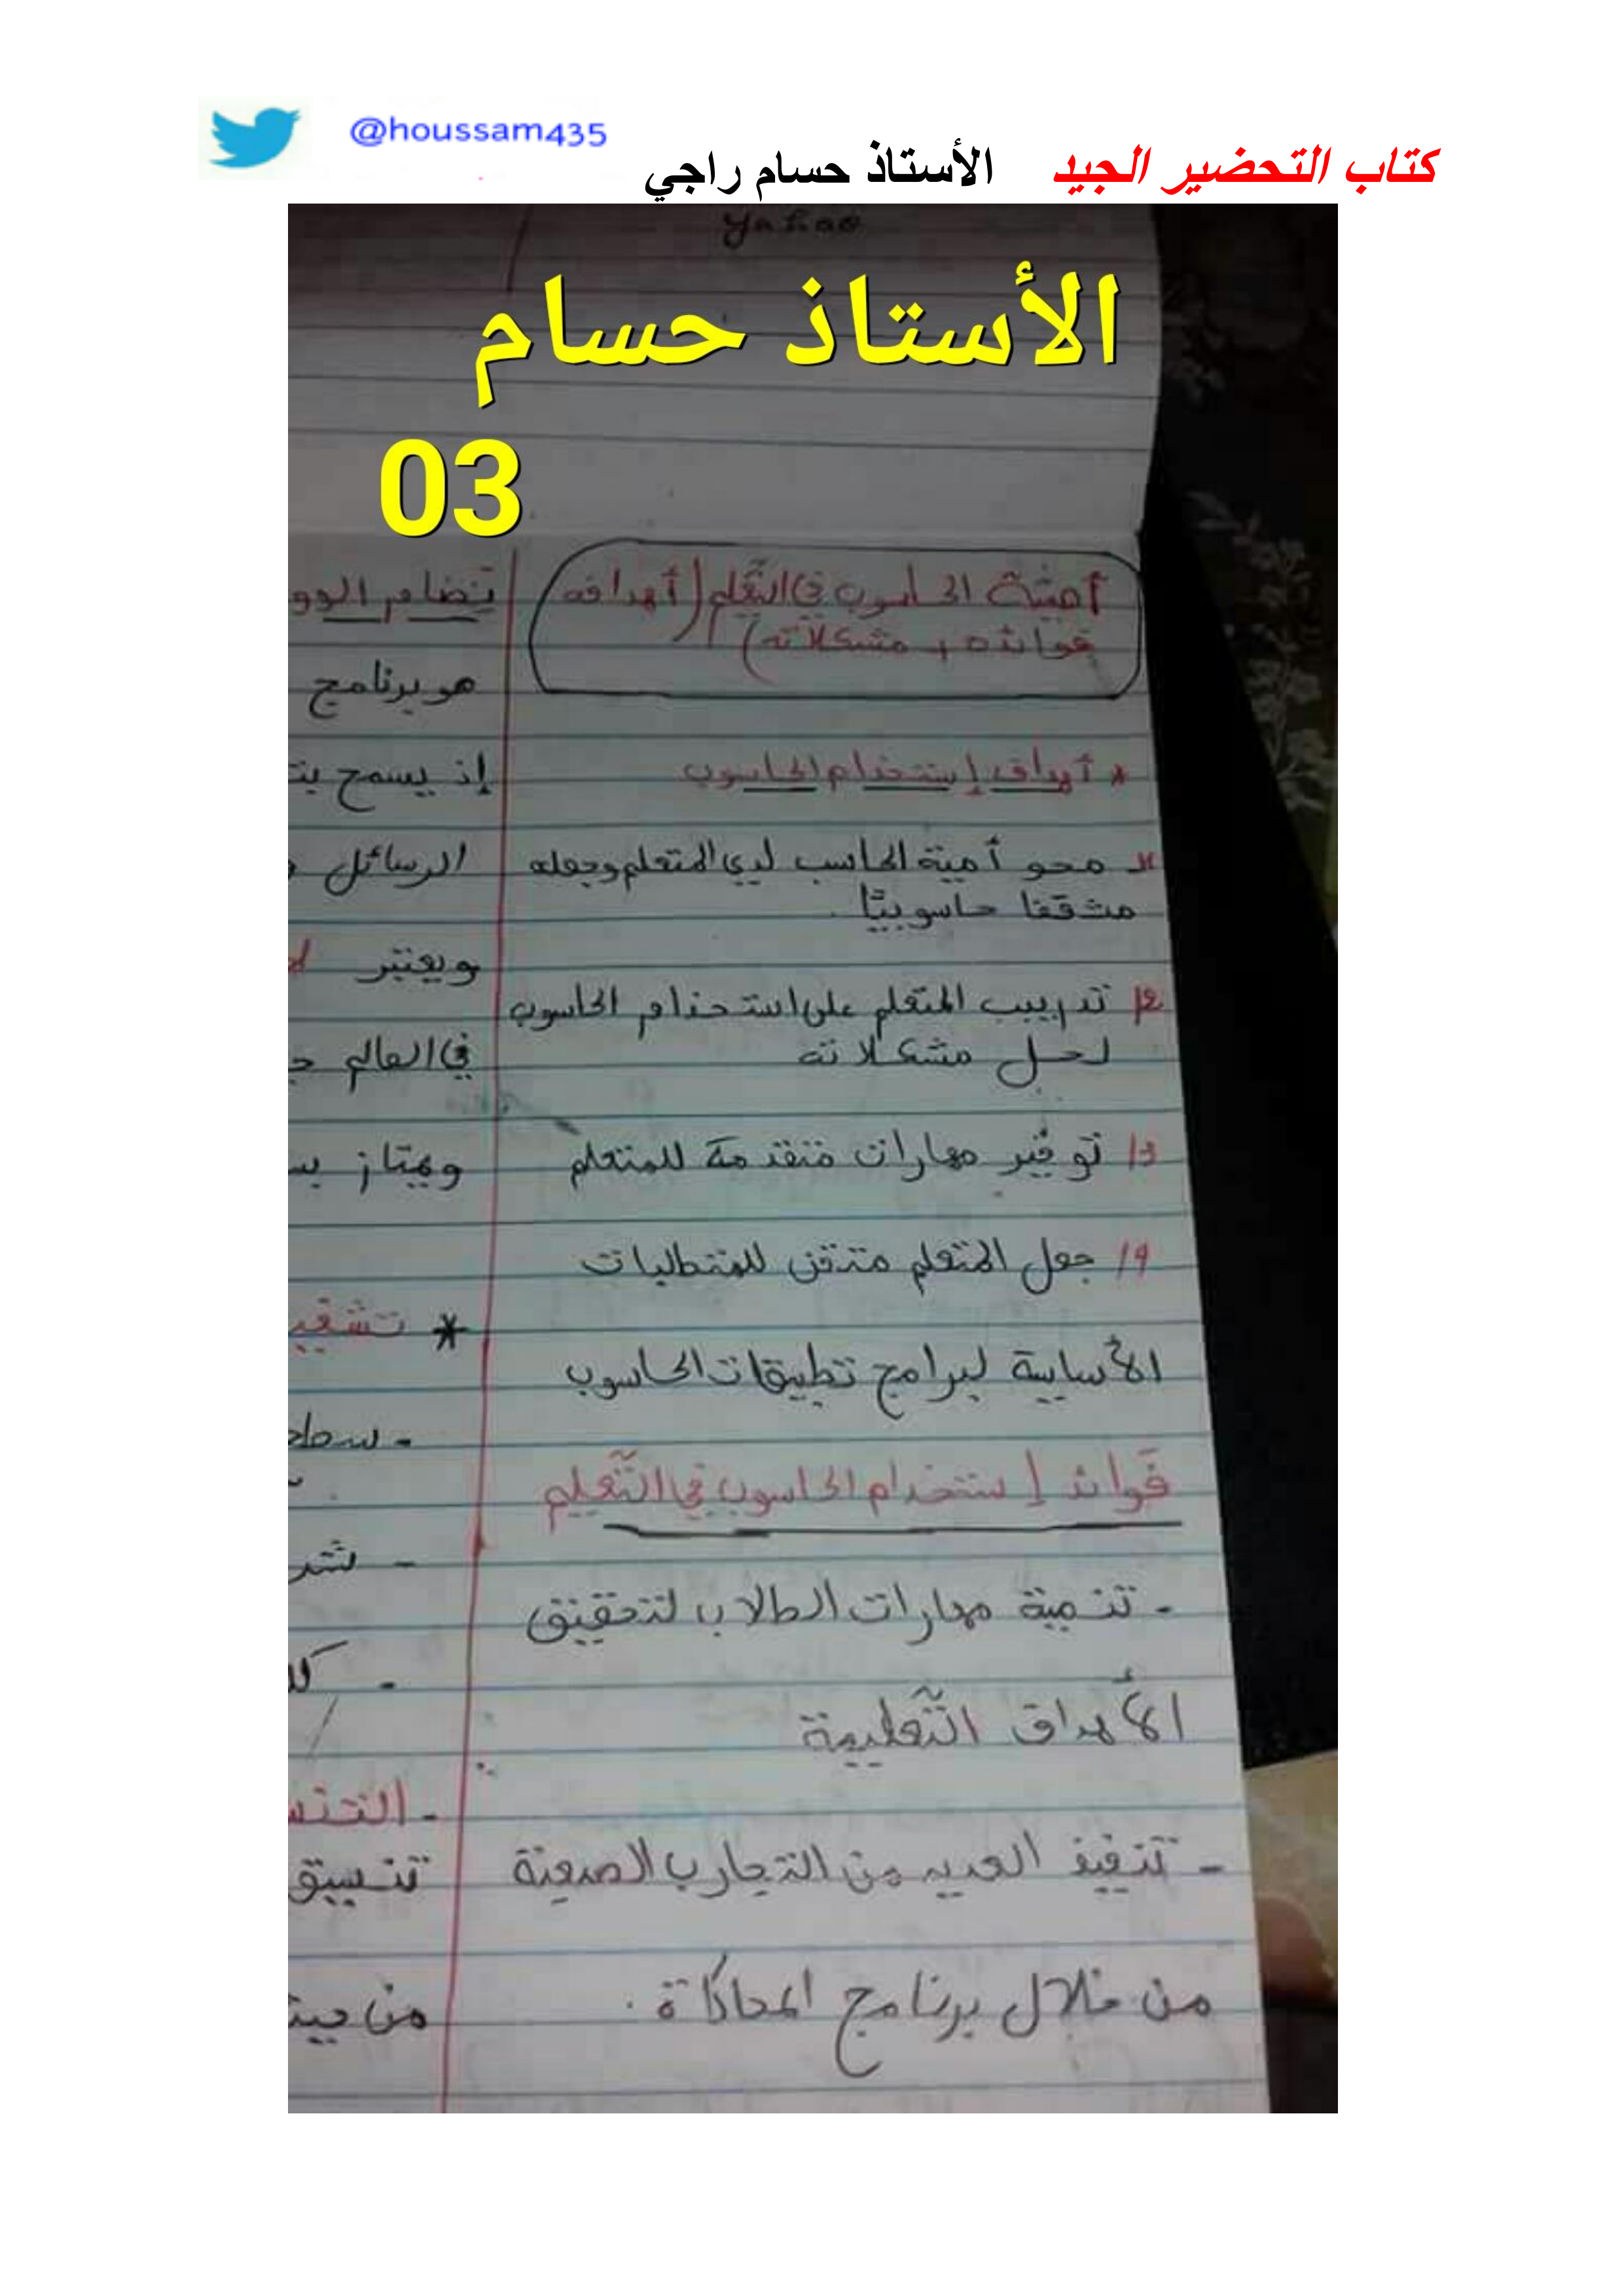 @houssam435
كتاب التحضير الجيد الأستاذ حسام راجي
yahoo
الأستاذ حسام
03
أهمية الحاسوب في التعلم (أهدافه
فوائده , مشكلاته)
* أهداف إستخدام الحاسوب
محو أمية الحاسب لدي المتعلم وجعله
مثقفا حاسوبيًّا .
تدريب المتعلم على استخدام الحاسوب
لحل مشكلاته
3/ توفير مهارات متقدمة للمتعلم
جعل المتعلم متقن للمتطلبات
الأساسية لبرامج تطبيقات الحاسوب
فوائد إستخدام الحاسوب في التّعليم
- تنمية مهارات الطلاب لتحقيق
الأهداف التّعليمية
- تنفيذ العديد من التجارب الصعبة
من خلال برنامج المحاكاة .
هو برنامج
إذ يسمح
الرسائل
ويعتبر
في العالم
ويمتاز
*
-
-
-
-
تنسيق
من